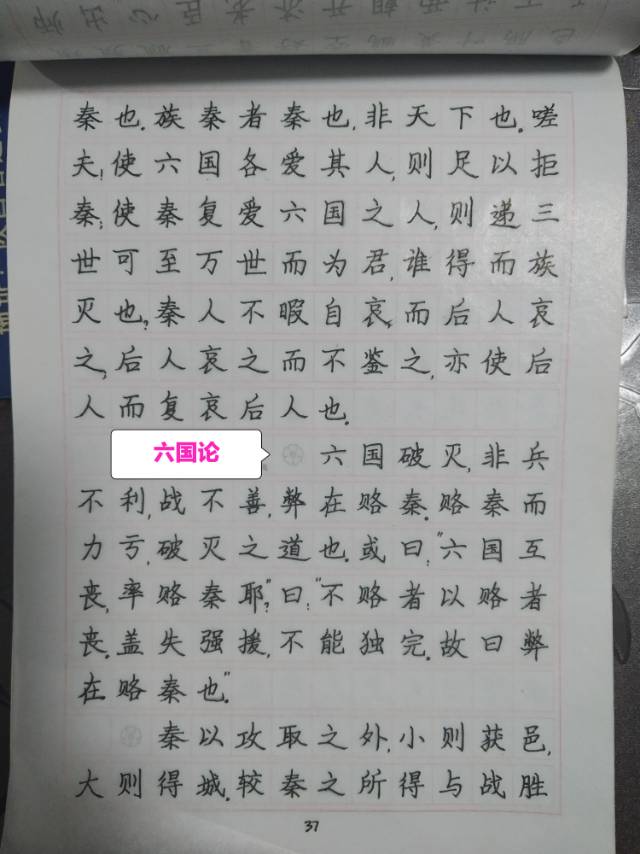 秦也。族秦者秦也,非天下也。嗟
夫!使六国各爱其人,则足以拒
秦;使秦复爱六国之人,则递三
世可至万世而为君,谁得而族
灭也?秦人不暇自哀,而后人哀
之;后人哀之而不鉴之,亦使后
人而复哀后人也。
六国论
六国破灭,非兵
不利,战不善,弊在赂秦。赂秦而
力亏,破灭之道也。或曰:“六国互
丧,率赂秦耶?”曰:“不赂者以赂者
丧。盖失强援,不能独完。故曰弊
在赂秦也。”
秦以攻取之外,小则获邑,
大则得城。较秦之所得与战胜
37